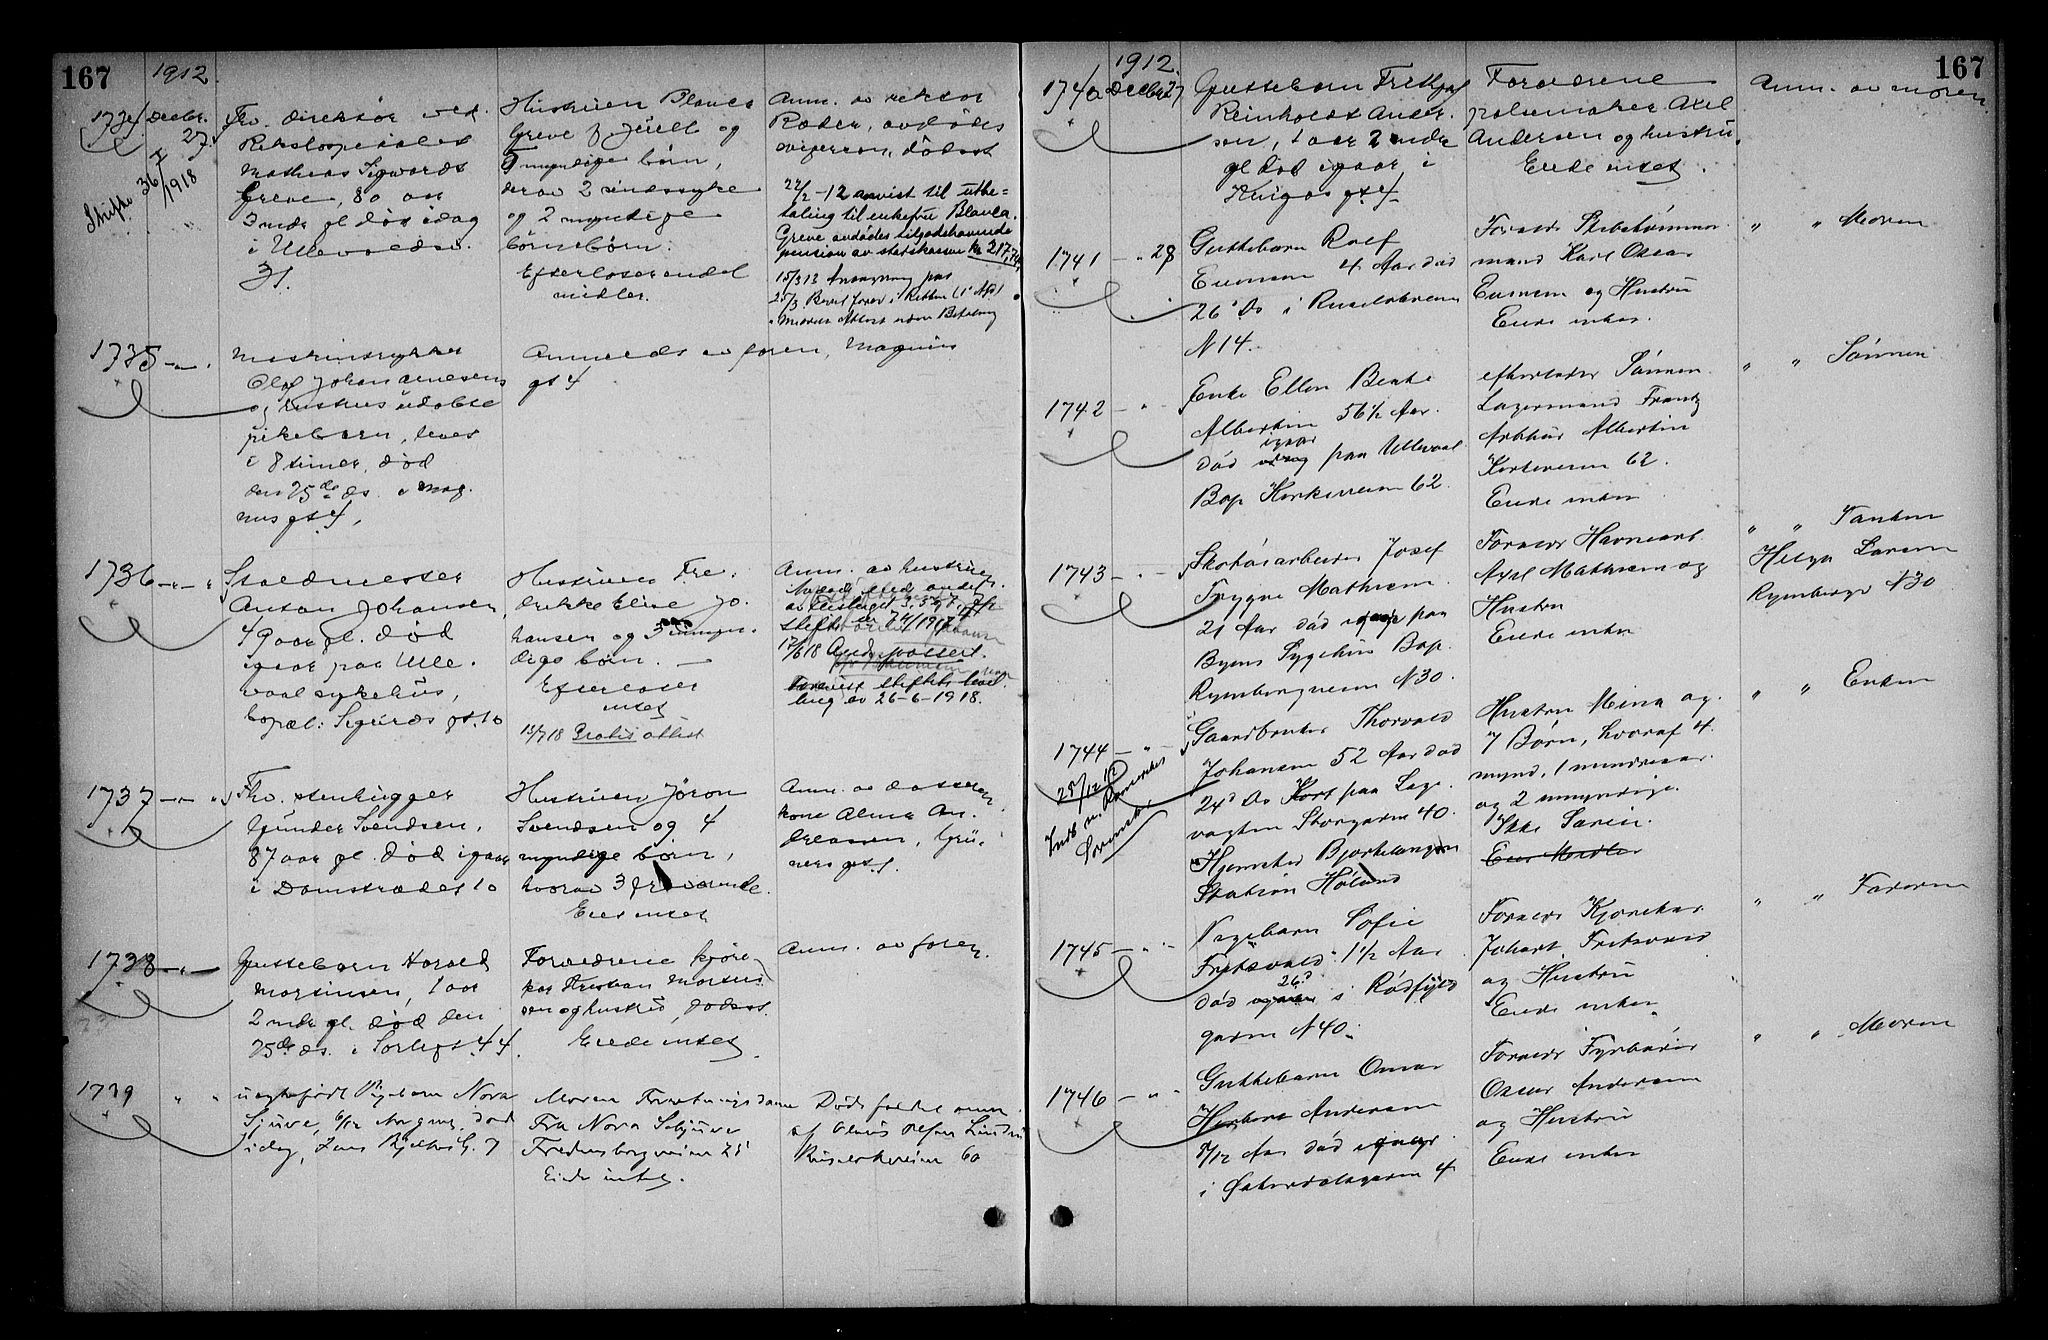 167
1912.
1734
Decbr.
27
Skifte 367/1918
Fhv. direktør ved
Rikshospitalet
Mathias Sigwardt
Greve, 80 aar
gl. død idag
i Ullevoldsv.
31.
Hustruen Blanca
Greve f. Juell og
5 myndige børn,
derav 2 sindssyke
og 2 myndige
børnebørn.
Efterlater endel
midler.
Anm. av rektor
Ræder, avdødes
svigersøn,
22/2 -12 anvist til utbe-
taling til enkefru Blanca
Greve avdødes tilgodehavende
pension av statskassen kr 217,74
1735 — "
Maskintrykker
Olaf Johannesens
og hustrus udøbte
pikebarn, levet
i 8 timer, død
den 25de ds. i Mag-
nusgt 4,
Anmeldt av faren, Magnus
gt 4
1736 — " "
Staldmester
Anton Johansen,
49 aar gl. død
igaar paa Ulle-
vaal sykehus,
bopæl: Sigurds gt. 10
Hustruen Fre-
drikke Eline Jo-
hansen og 3 umyn-
dige børn. —
Efterlater
intet
13/7 18 Gratis attest
Anm. av hustruen.
17/6 18
skiftets
av 26-6-1918.
1737 — " "
Fhv. stenhugger
Gunder Svendsen,
87 aar gl. død igaar
i Damstrædet 10
Hustruen Jøron
Svendsen og 4
myndige børn,
hvorav 3 fraværende.
Eier intet
Anm. av datteren
kone Alma An-
dreassen, Grü-
nersgt. 1.
1738 — " —
Guttebarn Harald
Martinsen, 1 aar
2 mdr. gl. død den
25de ds. i Sorligt. 44.
Forældrene kjøre-
kar Kristian Martin-
sen og hustru,
Eiede intet
Anm. av faren.
1739 " "
uægtefødt Pigebarn Nora
Sjuve, 6/12 Aar gml. død
idag, Jens Bjelkes G. 7
Moren Forretningsdame
Frk Nora Schjuve
Fredensborgveien 25
Eide intet.
Dødsfaldet anm.
af Olaus Olsen
Ruseløkveien 60
167
1912.
1740 Decbr 27
Guttebarn Frithjof
Reinholdt Ander-
sen, 1 aar 2 mdr
gl. død igaar i
gt 4
Forældrene
pølsemaker Axel
Andersen og hustru.
Eiede intet.
Anm. av moren
1741 — " 28
Guttebarn Rolf
4 Aar død
26' Ds i Ruseløkveien
N 14.
Forældr. Skibstømmer-
mand Karl Oscar
og Hustru
Eiede intet.
" " Moren
1742 — " —
Enke Ellen Beate
Albertin 56 1/2 Aar.
død igaar paa Ullevaal
Bop Kirkeveien 62.
efterlader Sønnen
Lagermand Frantz
Arthur Albertin
Kirkeveien 62.
Eiede intet
" " Sønnen
1743 — " —
Skotøiarbeider Josef
Trygve Mathisen
21 Aar død igaar paa
Byens Sygehus Bop.
Rymbergveien N 30.
Forældr Havnearb
Axel Mathisen og
Hustru
Eiede intet
" " Tanten
Helga Larsen
Rymbergv N 30
1744 — " —
28/12 12
Gaardbruker Thorvald
Johansen 52 Aar død
24' Ds Kort paa Lege-
vagten Storgaten 40.
Hjemsted Bjørkelangen
Station Høland
Hustru Mina og
7 Børn, hvoraf 4
mynd. 1 mindreaar.
og 2 umyndige.
" " Enken
1745 — " —
Pigebarn Sofie
Fritzvold 1 1/2 Aar
død 26' i Rødfyld
gaten N 40.
Forældr Kjørekar
Johart Fritzvold
og Hustru
Eiede intet
" " Faderen
1746 — " "
Guttebarn Omar
Herbert Andersen
5/12 Aar død igaar
i Østerdalsgaten 4
Forældr Fyrbøder
Oscar Andersen
og Hustru
Eiede intet
" " Moren